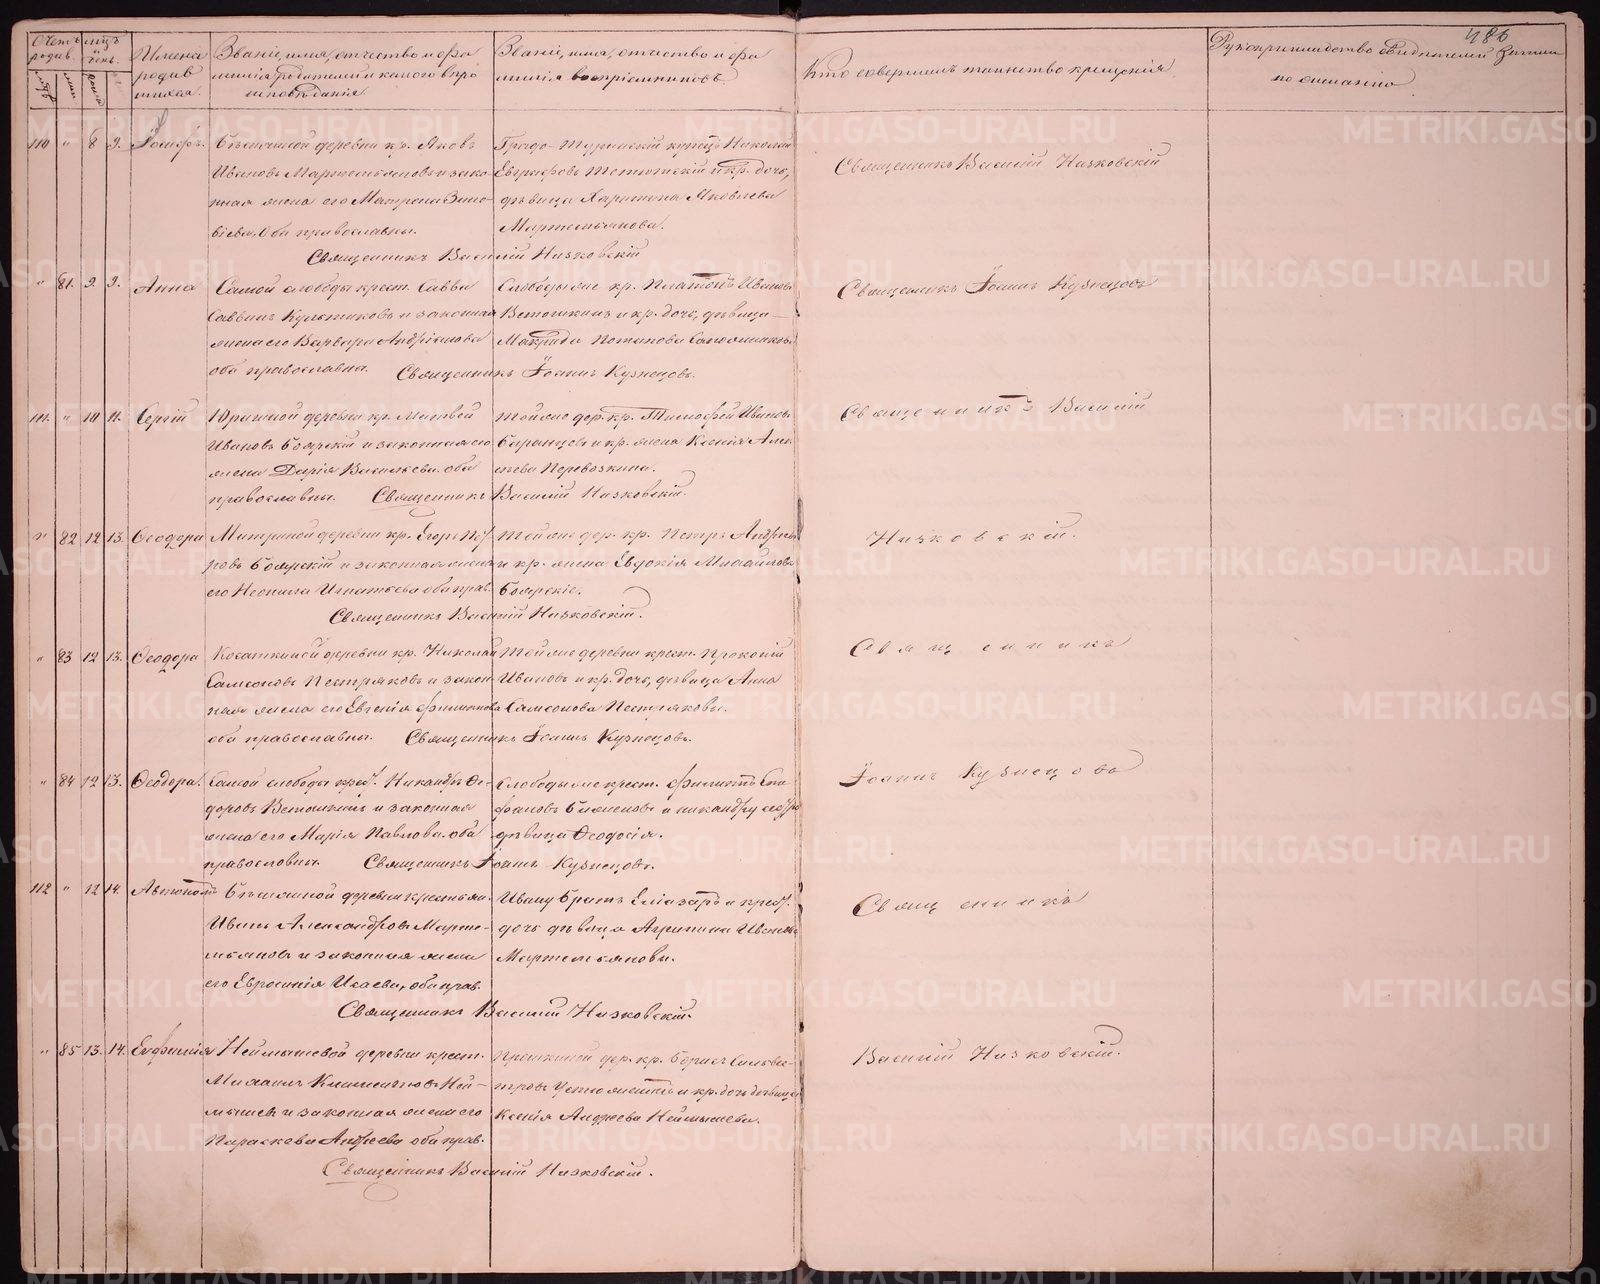 486
Счетъ родив.
мѣсяцъ и день.
Имена родившихся.
Званіе, имя, отчество и фамилія родителей и какого вѣроисповѣданія
Званіе, имя, отчество и фамилія воспріемниковъ
Кто совершалъ таинство крещенія
Рукоприкладство свидѣтелей записи по желанію
110 " 8 9. Іосифъ.
деревни кр. Яковъ
Ивановъ Мартемьяновъ и зако-
нная жена его Матрона Зино-
віева, Оба православны.
Градо-Туринскій купецъ Николай
Евграфовъ и кр. дочь,
дѣвица Харитина Яковлева
Мартемьянова.
Священникъ Василій Низковскій
Священникъ Василій Низковскій
" 81. 9. 9. Анна
Самой слободы крест. Савва
Саввинъ и законная
жена его Варвара Андріанова
оба православны.
Слободы же кр. Платонъ Ивановъ
Ветошкинъ и кр. дочь, дѣвица
Потапова
Священникъ Іоаннъ Кузнецовъ.
Священникъ Іоаннъ Кузнецовъ
111. " 10 11. Сергій
деревни кр. Матвей
Ивановъ Боярскій и законная его
жена Дарія Васильева. оба
православны.
Той же дер. кр. Тимофей Ивановъ
Баранцевъ и кр. жена Ксенія Але-
ксѣева Перевозкина.
Священникъ Василій Низковскій.
Священникъ Василій
" 82 12 13. Ѳеодора
деревни кр. Егоръ
ровъ Боярскій и законная жена
его Неонила Игнатьева оба прав.
Той же дер. кр. Петръ
и кр. жена Евдокія Михайлова
Боярскіе.
Священникъ Василій Низковскій.
Низковскій.
" 83 12 13. Ѳеодора
деревни кр. Николай
Самсоновъ Пестряковъ и закон-
ная жена его Евгенія Филипова
оба православны.
Той же деревни крест. Прокопій
Ивановъ и кр. дочь, дѣвица Анна
Самсонова Пестряковы.
Священникъ Іоаннъ Кузнецовъ.
Священникъ
" 84 12 13. Ѳеодора.
Самой слободы крест. Никандръ Ѳе-
доровъ Ветошкинъ и законная
жена его Марія Павлова. оба
православны.
Слободы же крест. Филиппъ Сте-
фановъ и Никандру сестра
дѣвица Ѳеодосія.
Священникъ Іоаннъ Кузнецовъ.
Іоаннъ Кузнецовъ
112 " 12 14. Автономъ
деревни крестьян.
Иванъ Александровъ Марте-
мьяновъ и законная жена
его Евросинія Исаева, оба прав.
Ивану братъ Еліазаръ и крест.
дочь дѣвица Агрипина Иванова
Мартемьяновы.
Священникъ Василій Низковскій.
Священникъ
" 85 13. 14. Евфимія
Неймышевой деревни крест.
Михаилъ Климентовъ Ней-
мышевъ и законная жена его
Параскева Андреева оба прав.
дер. кр. Борисъ Сильвес-
тровъ и кр. дочь дѣвица
Ксенія Андреева Неймышева.
Священникъ Василій Низковскій.
Василій Низковскій.
METRIKI.GASO-URAL.RU